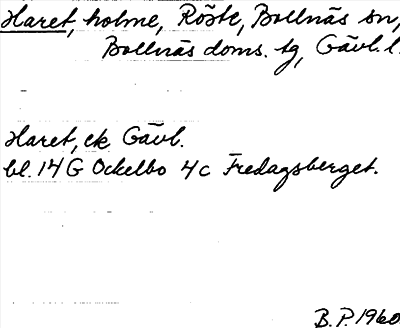 Haret, holme, Röste, Bollnäs sn,
Bollnäs doms. tg, Gävl. l.
Haret, ek Gävl.
bl. 14 G Ockelbo 4c Fredagsberget.
B.P. 1960